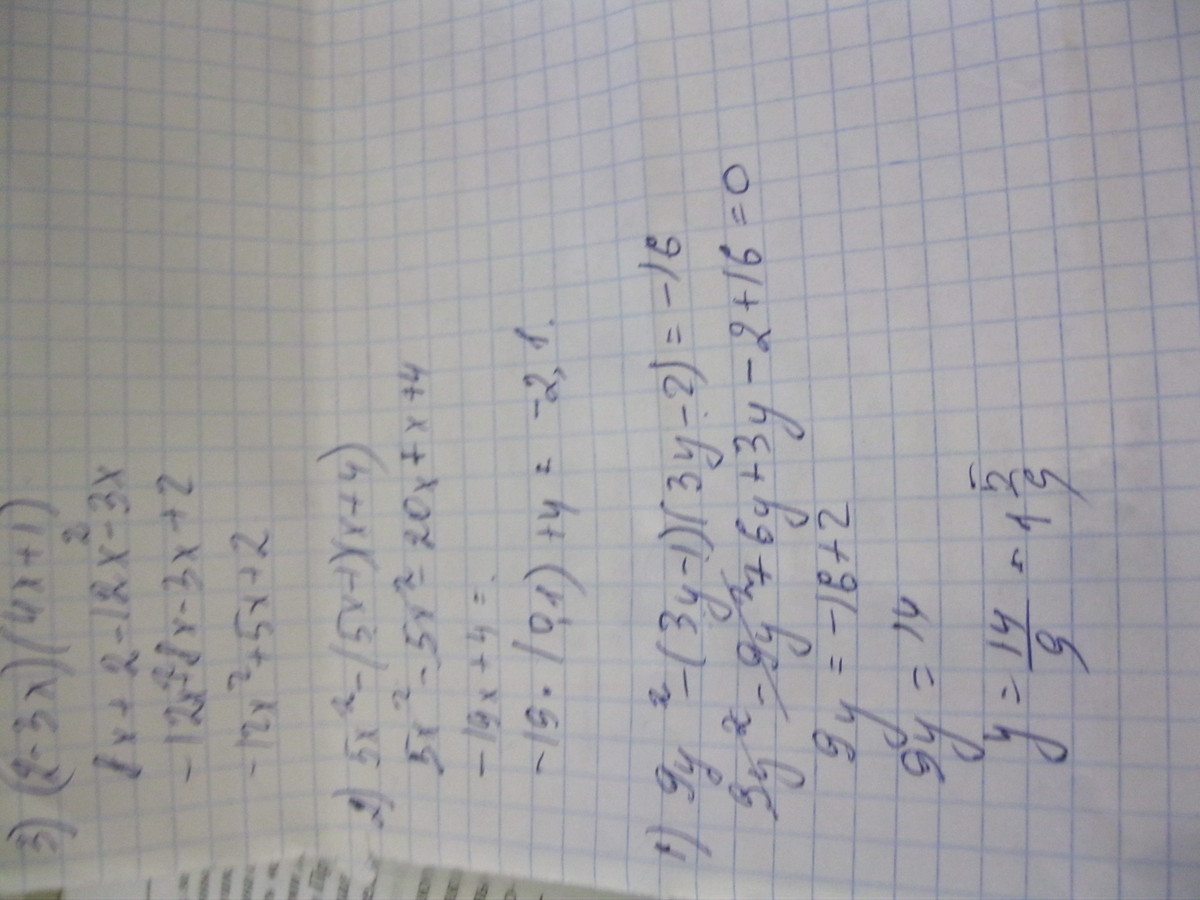 3) (2-3x)(4x+1)
8x+2-12x²-3x
-12x²+8x-3x+2
-12x²+5x+2
2) 5x²-(5x-1)(x+4)
5x²-5x²=20x+x+4
-19x+4=
-19·(0,1)+4=-2,1.
1) 9y²-(3y-1)(3y-2)=-16
9y²-9y²+6y+3y-2+16=0
9y=-16+2
9y=14
y=14/9=1 5/9